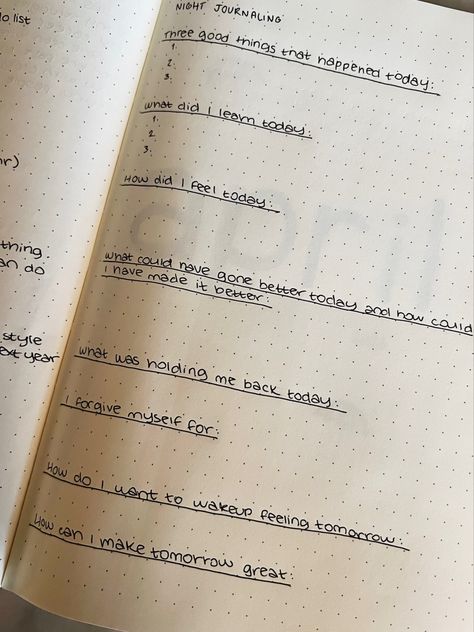 o list
r)
thing.
an do
style
ext year
NIGHT JOURNALING
Three good things that happened today:
1.
2.
3.
What did I learn today:
1.
2
3.
How did I feel today:
april
What could have gone better today and how could
I have made it better:
What was holding me back today:
I forgive myself for:
How do I want to wakeup feeling tomorrow:
How can I make tomorrow great: